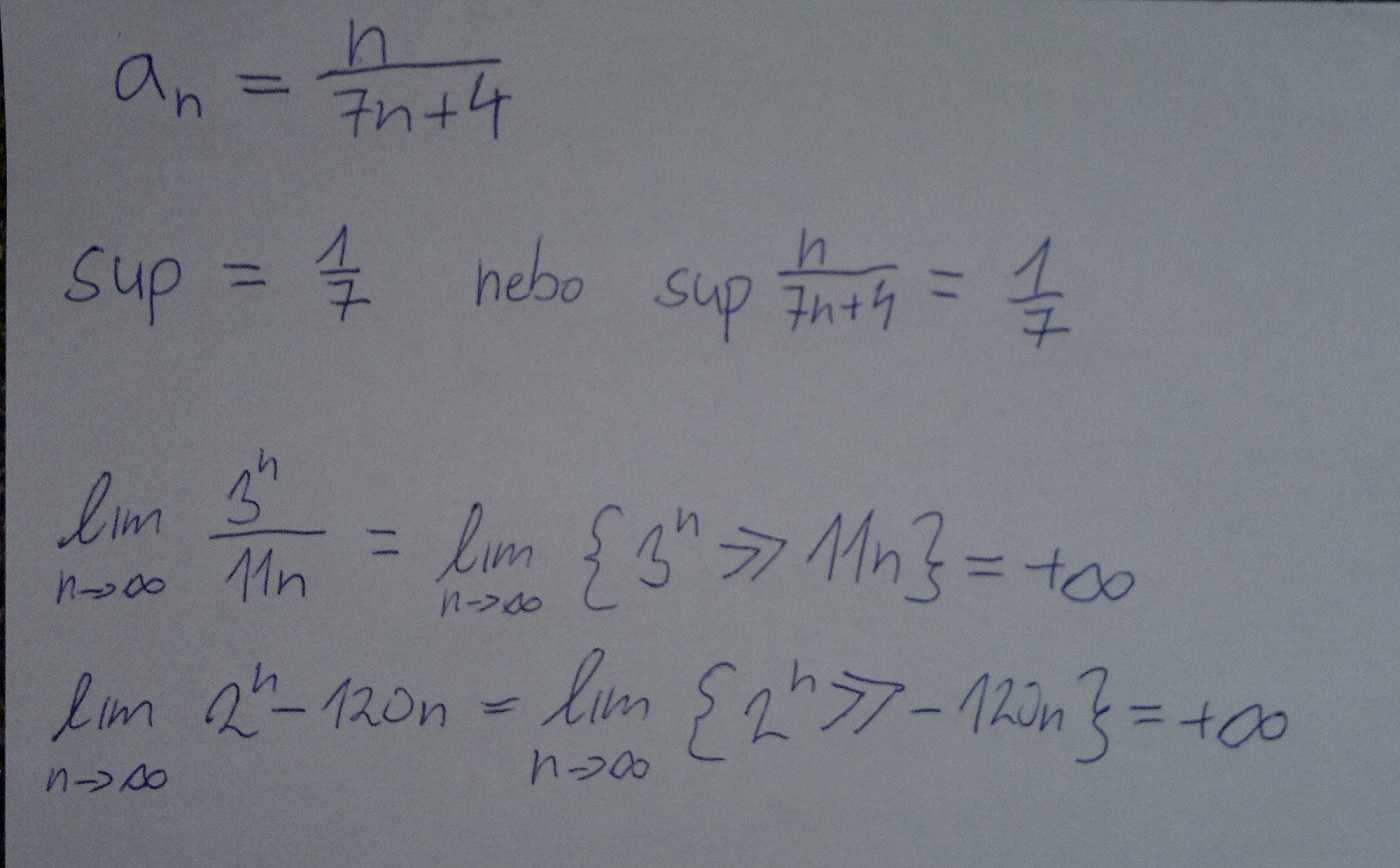 aₙ = n/(7n+4)
sup = 1/7 nebo sup n/(7n+4) = 1/7
lim n→∞ 3ⁿ/(11n) = lim n→∞ {3ⁿ ≫ 11n} = +∞
lim n→∞ 2ⁿ - 120n = lim n→∞ {2ⁿ ≫ -120n} = +∞